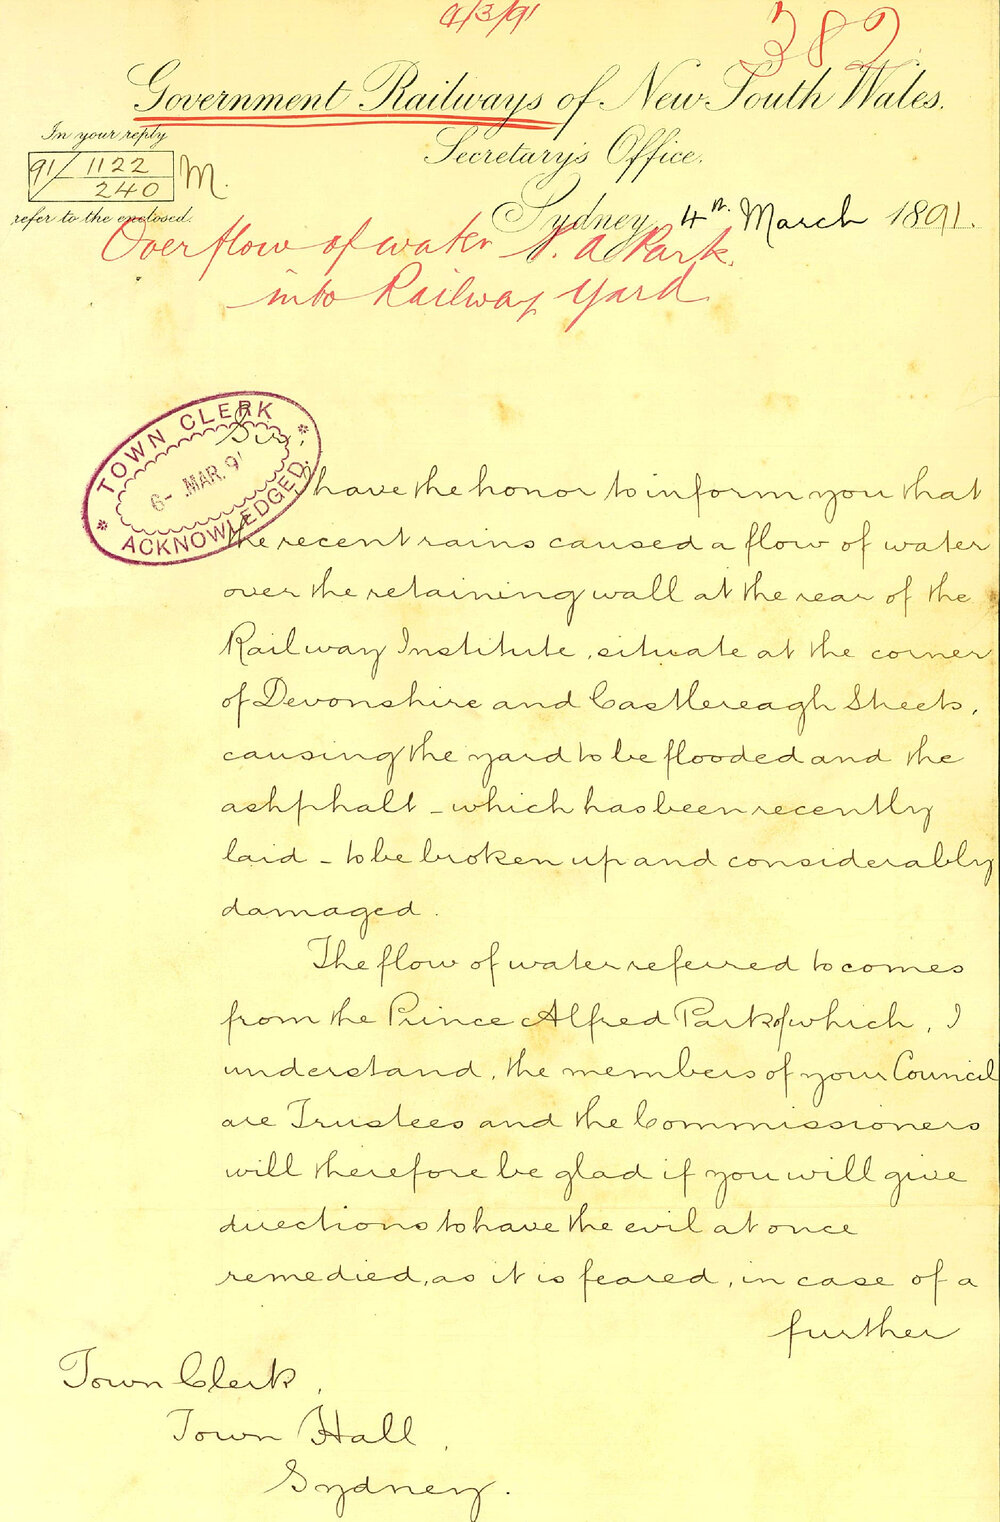 4/3/91
382
Government Railways of New South Wales.
Secretary's Office.
In your reply
91/1122
240
M.
refer to the enclosed.
Sydney, 4th March 1891.
Overflow of water P. A Park
into Railway Yard
TOWN CLERK
6- MAR. 91
ACKNOWLEDGED.
Sir,
I have the honor to inform you that
the recent rains caused a flow of water
over the retaining wall at the rear of the
Railway Institute, situate at the corner
of Devonshire and Castlereagh Streets,
causing the yard to be flooded and the
ashphalt - which has been recently
laid - to be broken up and considerably
damaged.
The flow of water referred to comes
from the Prince Alfred Park of which, I
understand, the members of your Council
are Trustees and the Commissioners
will therefore be glad if you will give
directions to have the evil at once
remedied, as it is feared, in case of a
further
Town Clerk,
Town Hall,
Sydney.